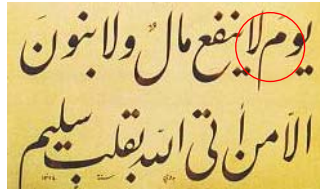 يومَ لا ينفع مالٌ ولا بنونَ
الا من أتى الله بقلب سليم